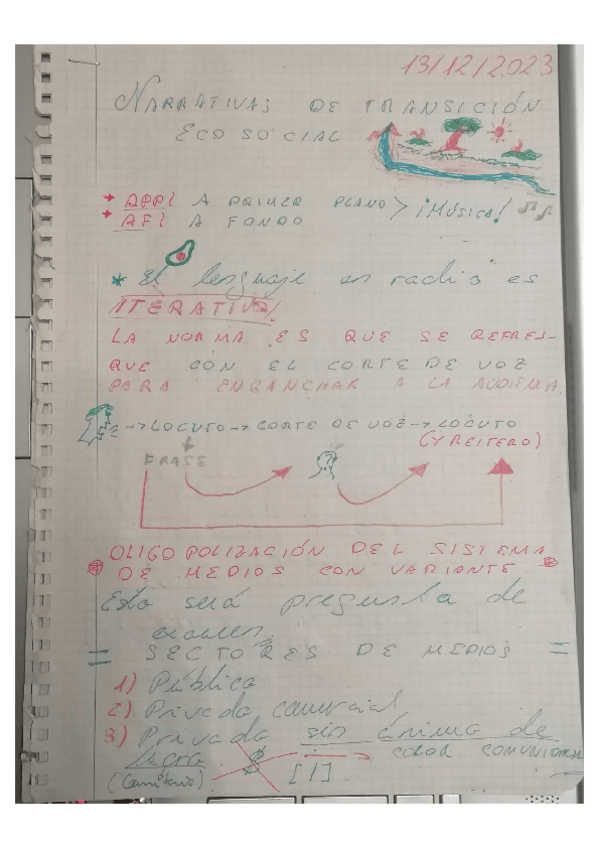 13/12/2023
NARRATIVAS DE TRANSICIÓN
ECO SOCIAL
→ APP: A PRIMER PLANO > ¡MÚSICA!
→ AF: A FONDO
* El lenguaje en radio es
ITERATIVO/
LA NORMA ES QUE SE REFRES-
QUE CON EL CORTE DE VOZ
PARA ENGANCHAR A LA AUDIENCIA.
-> LOCUTO -> CORTE DE VOZ -> LOCUTO
(Y REITERO)
FRASS
OLIGOPOLIZACIÓN DEL SISTEMA
DE MEDIOS CON VARIANTE
Esto será pregunta de
examen.
= SECTORES DE MEDIOS =
1) Público
2) Privado comercial
3) Privado sin ánimo de
lucro
COLOR
[!]